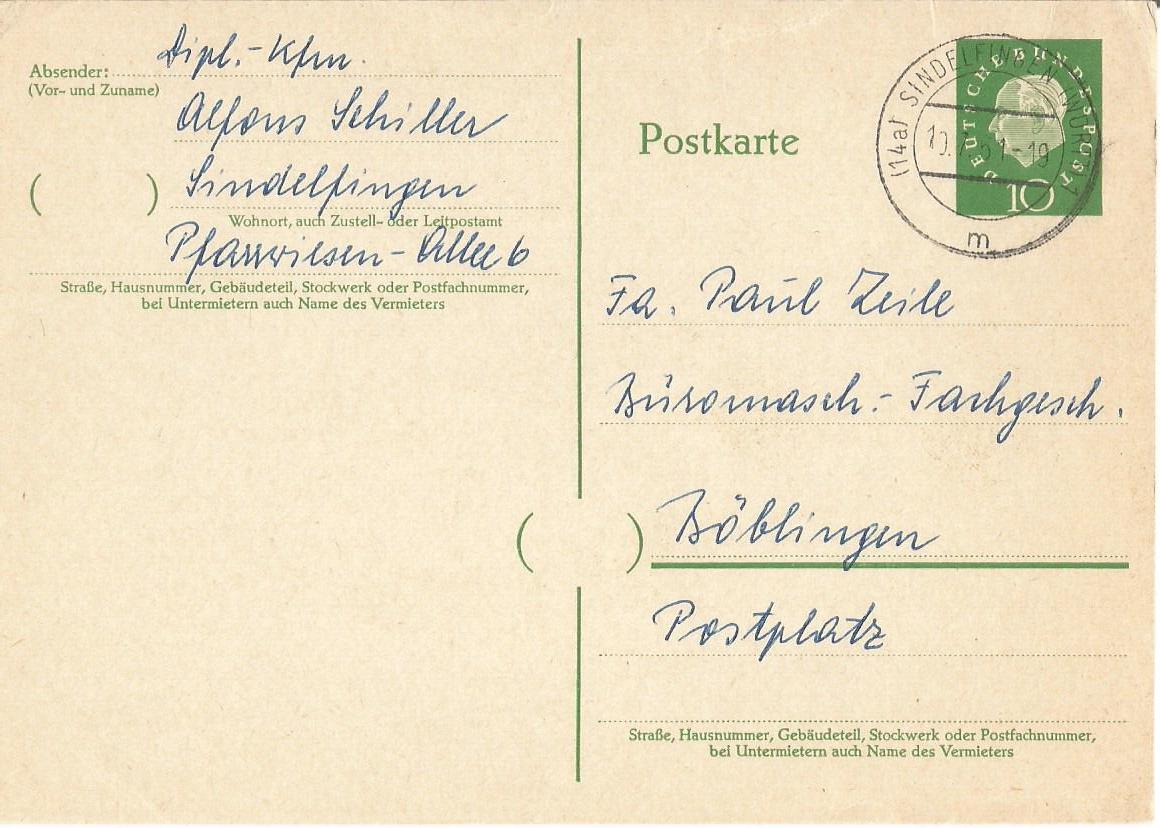 Absender: Dipl.-Kfm.
(Vor- und Zuname)
Alfons Schiller
( ) Sindelfingen
Wohnort, auch Zustell- oder Leitpostamt
Pfarrwiesen-Allee 6
Straße, Hausnummer, Gebäudeteil, Stockwerk oder Postfachnummer,
bei Untermietern auch Name des Vermieters
Postkarte
DEUTSCHE BUNDESPOST
10
(14a) SINDELFINGEN (WÜRTT)
-19
m
Fa. Paul Zeile
Büromasch.- Fachgesch.
( ) Böblingen
Postplatz
Straße, Hausnummer, Gebäudeteil, Stockwerk oder Postfachnummer,
bei Untermietern auch Name des Vermieters